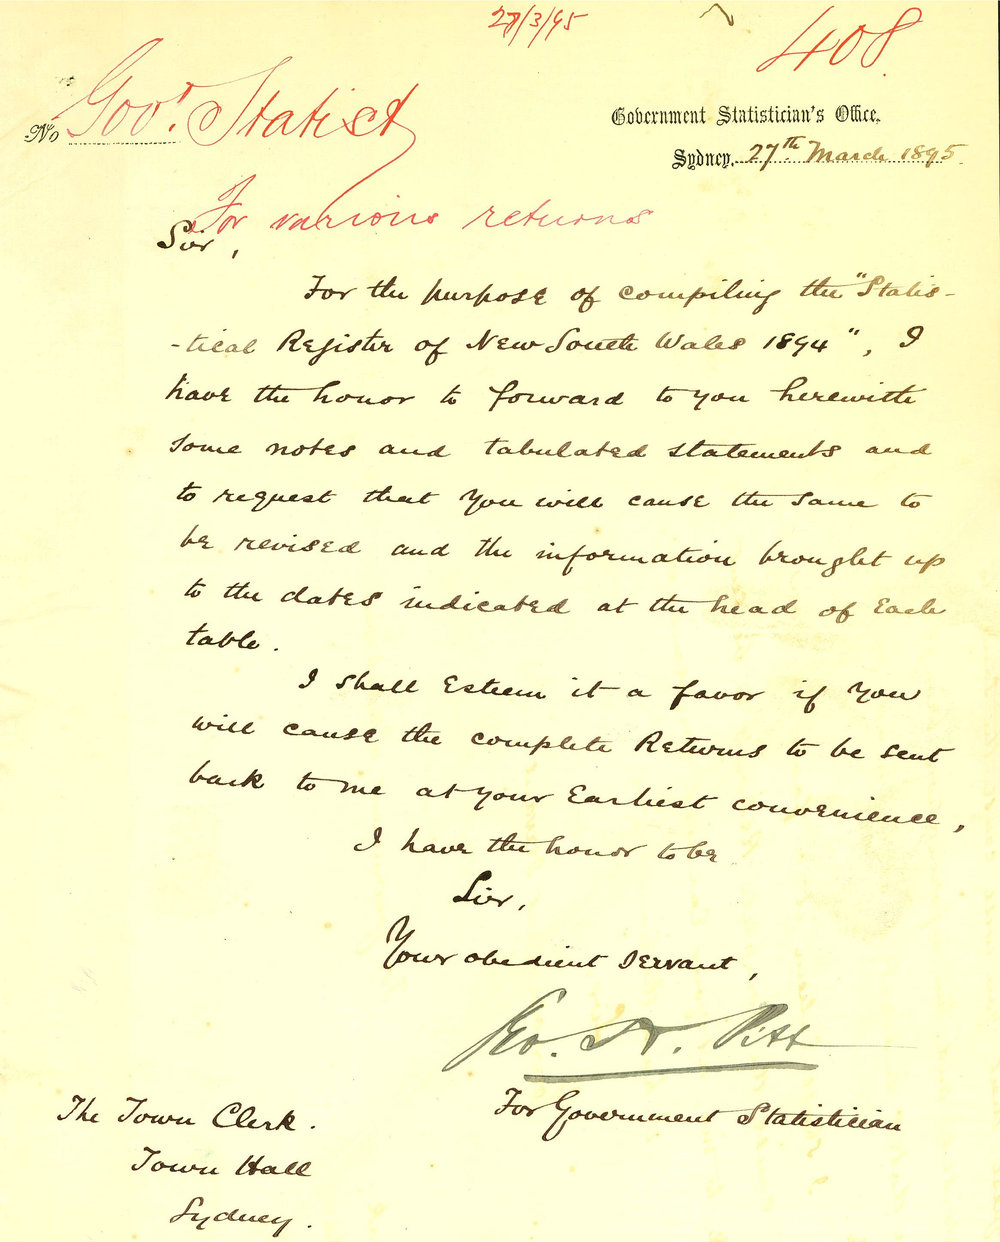 27/3/95
408
Govt. Statist
Government Statistician's Office,
No
Sydney, 27th March 1895.
For various returns
Sir,
For the purpose of compiling the "Statis-
-tical Register of New South Wales 1894", I
have the honor to forward to you herewith
some notes and tabulated statements and
to request that you will cause the same to
be revised and the information brought up
to the dates indicated at the head of each
table.
I shall esteem it a favor if you
will cause the complete Returns to be sent
back to me at your earliest convenience,
I have the honor to be
Sir,
Your obedient servant,
Geo. Pitt
For Government Statistician
The Town Clerk.
Town Hall
Sydney.